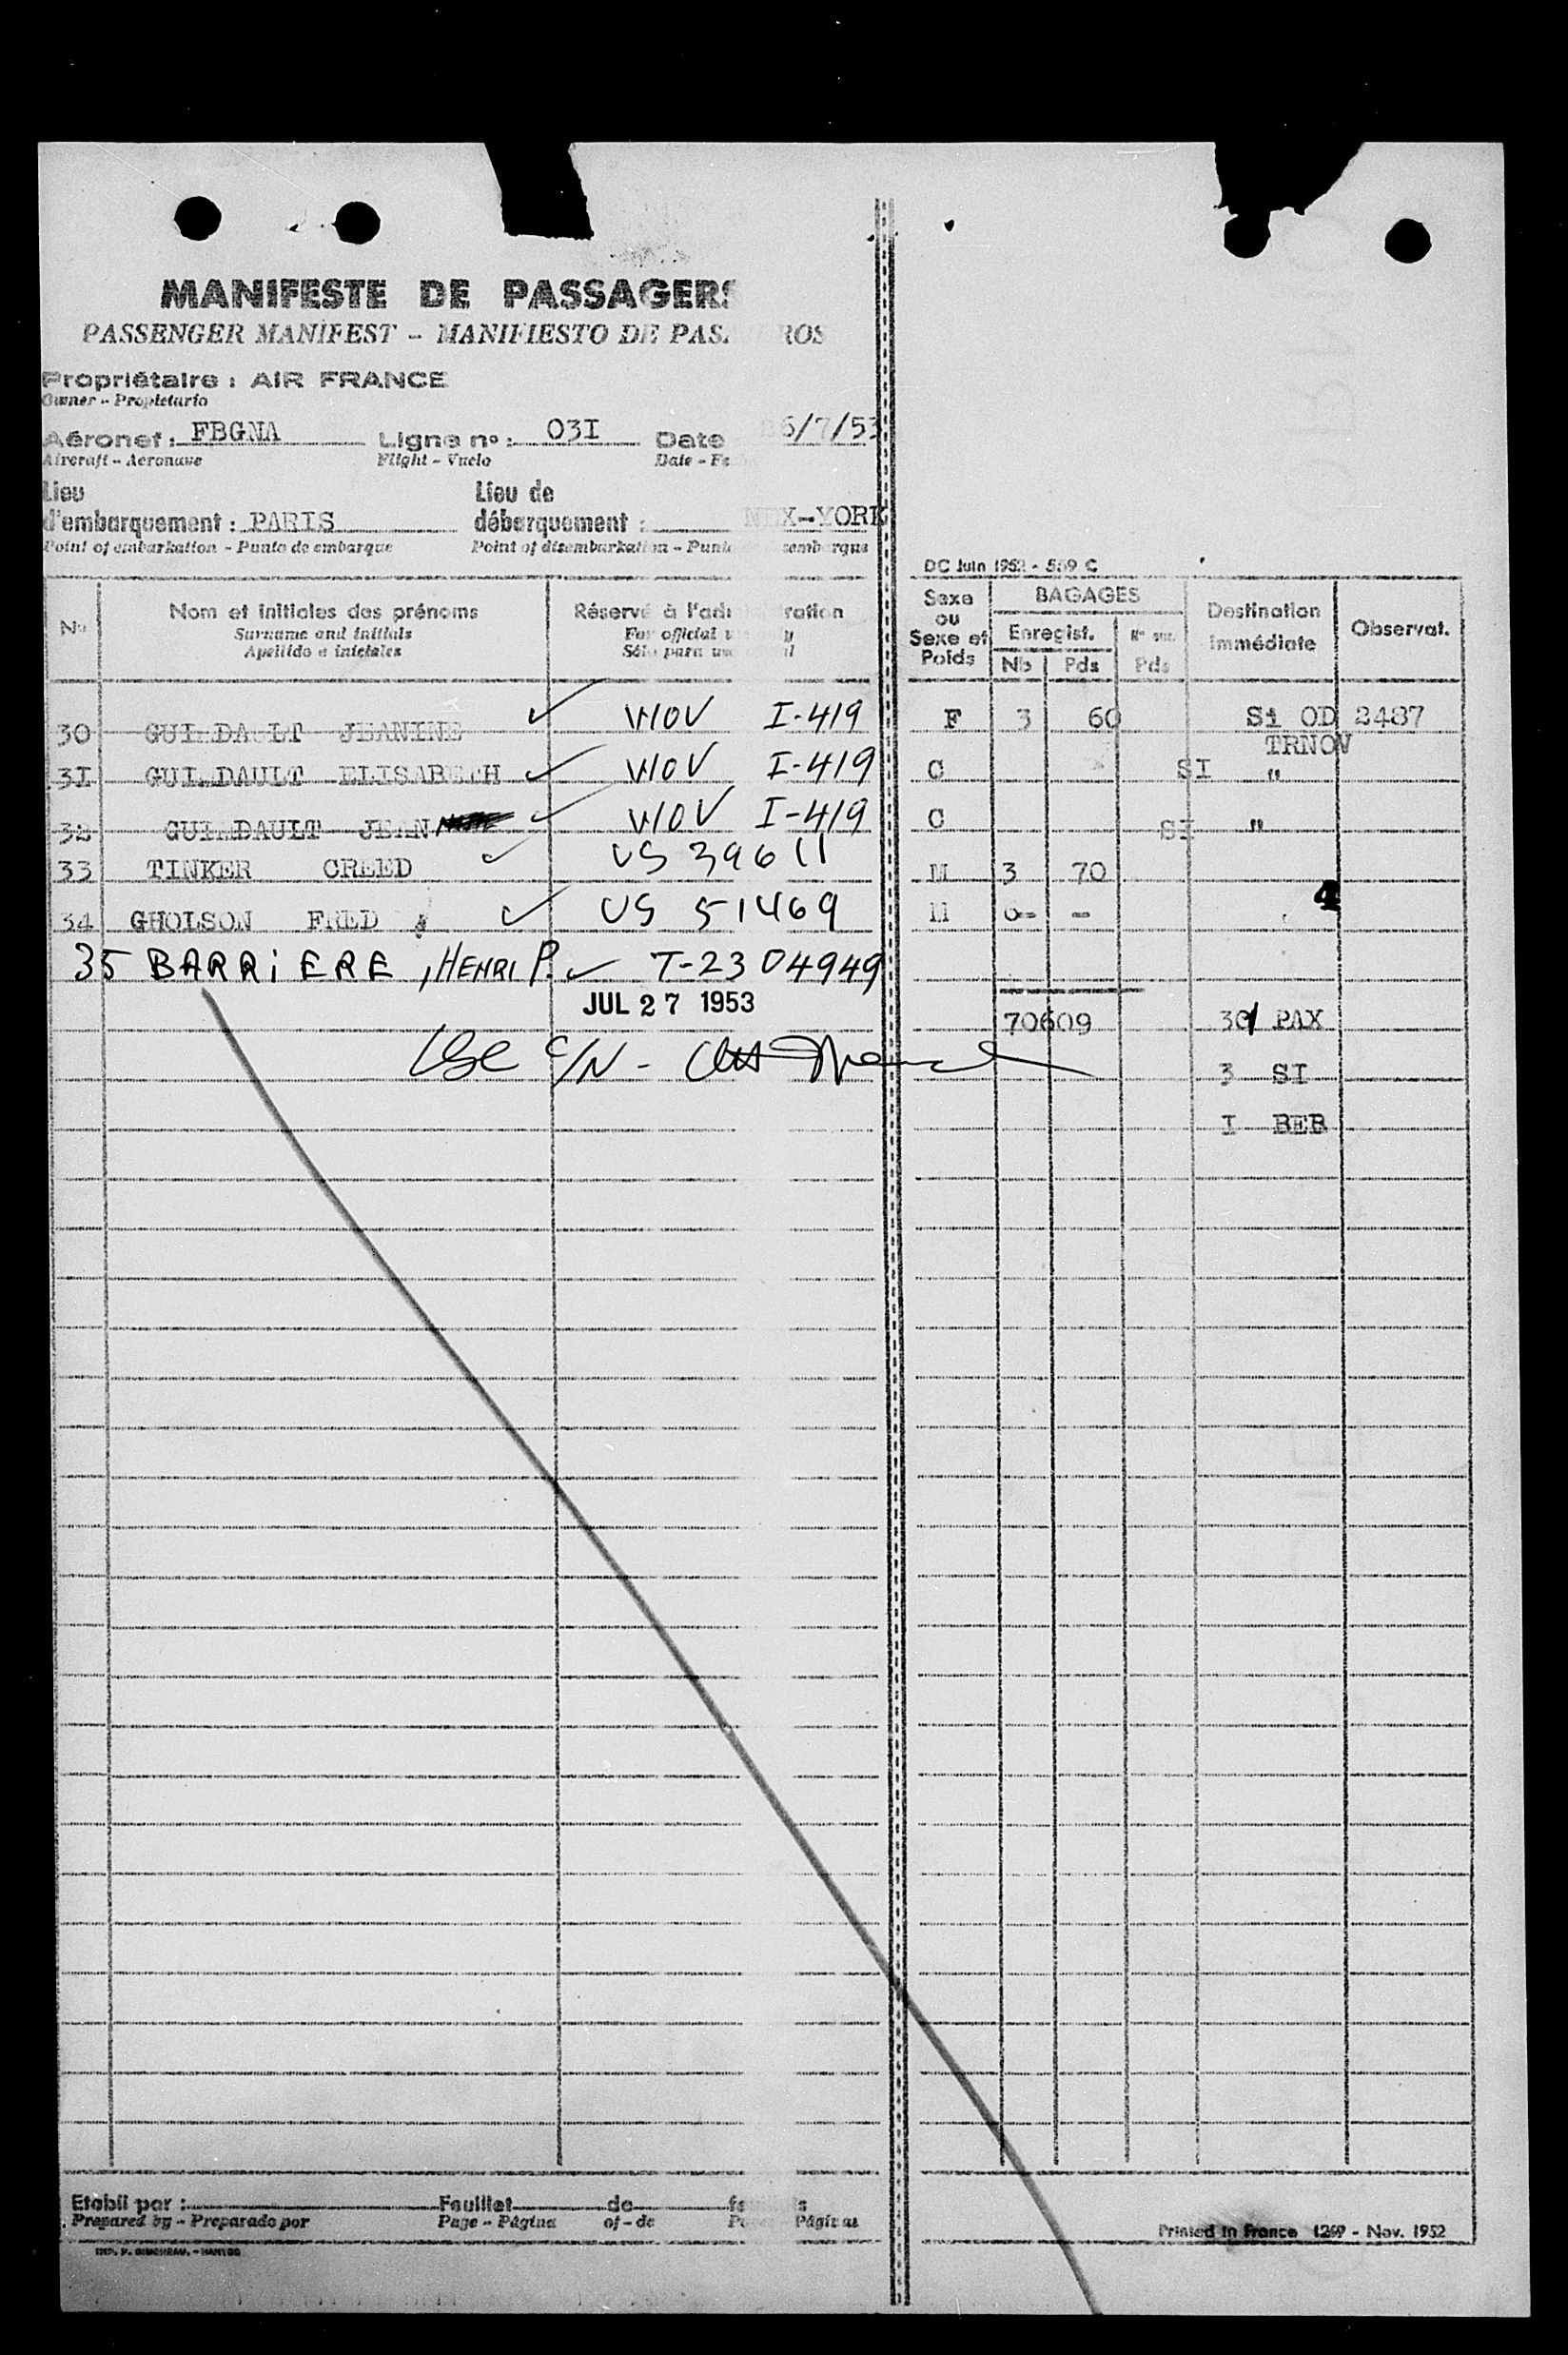 MANIFESTE DE PASSAGERS
PASSENGER MANIFEST - MANIFIESTO DE PAS ROS
Propriétaire : AIR FRANCE
Owner - Propietario
Aéronef : FBGNA Ligne nº : 03I Date 6/7/53
Aircraft - Aeronave Flight - Vuelo Date - Fe
Lieu Lieu de
d'embarquement : PARIS débarquement : X-YORK
Point of embarkation - Punto de embarque Point of disembarkation - Punto embarque
DC Juin 1952 - 569 C
Nº Nom et initiales des prénoms Réservé à l'adm ration Sexe ou Sexe et Poids BAGAGES Destination immédiate Observat.
Surname and initials For official Enregist.
Apellido e iniciales Sólo para Nb Pds Pds
30 GUILDAULT JEANINE ✓ WOV I-419 F 3 60 Si OD 2487
TRNOV
3I GUILDAULT ELISABETH ✓ WOV I-419 C SI "
32 GUILDAULT JEAN ✓ WOV I-419 C SI "
33 TINKER CREED ✓ US 39611 M 3 70
34 GHOLSON FRED ✓ US 51469 M - 4
35 BARRIERE, HENRI P. ✓ T-2304949
JUL 27 1953
70609 PAX
C/N -
3 SI
I BEB
Etabli par : Feuillet de
Prepared by - Preparado por Page - Página of - de Páginas
Printed in France 1269 - Nov. 1952